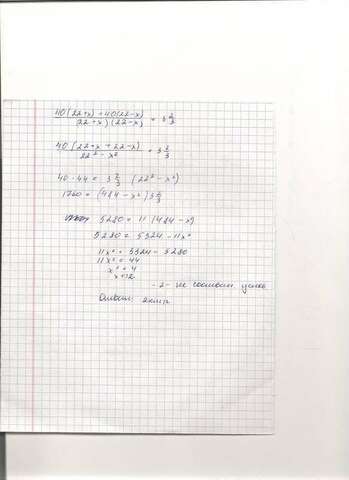 40(22+x)+40(22-x) / (22+x)(22-x) = 3 2/3
40(22+x+22-x) / 22² - x² = 3 2/3
40·44 = 3 2/3 (22² - x²)
1760 = (484 - x²) 3 2/3
5280 = 11 (484 - x)
5280 = 5324 - 11x²
11x² = 5324 - 5280
11x² = 44
x² = 4
x = ±2
-2 - не
Ответ: 2